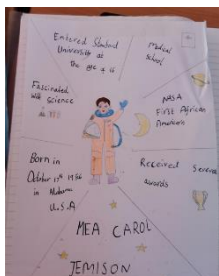 Entered Stanford
University at
the age of 16
Medical
School
Fascinated
with science
NASA
First African
American
Born in
October 17th 1956
in Alabama
U.S.A
Received
awards
MEA CAROL
JEMISON